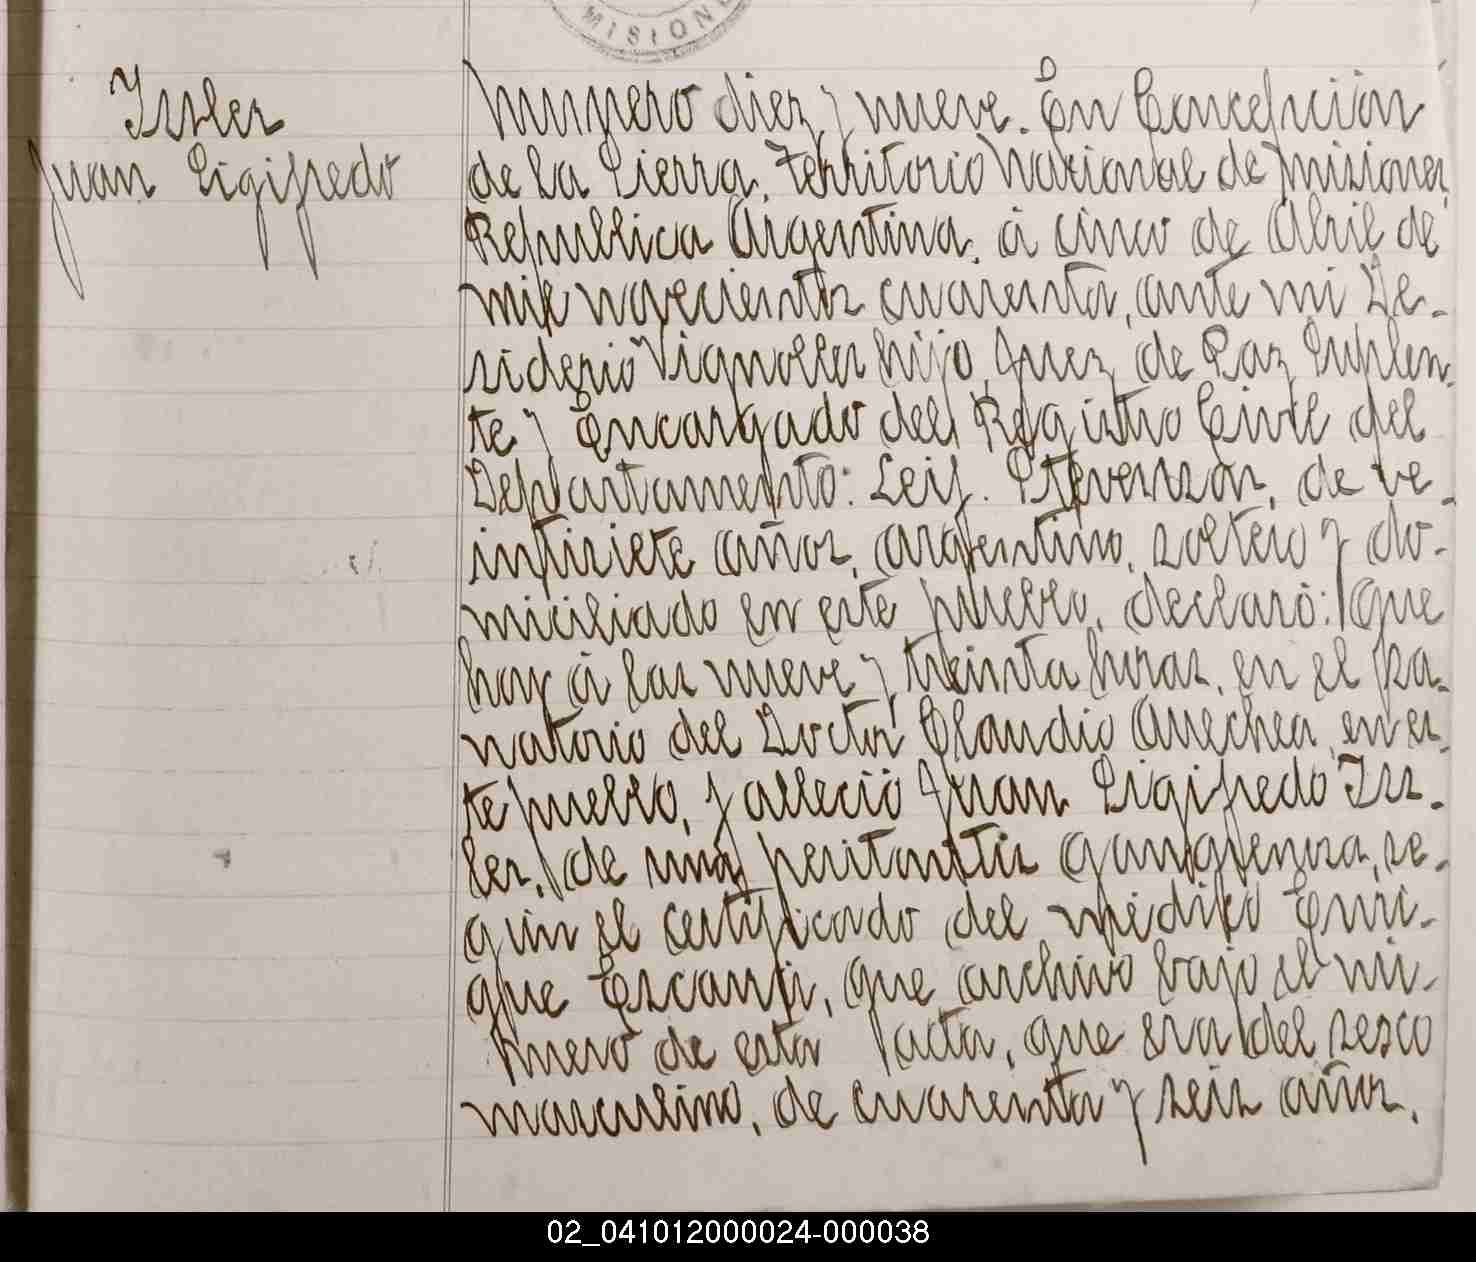 MISIONE
Issler
Juan Sigifredo
Numero diez y nueve. En Concepción
de la Sierra, Territorio Nacional de Misiones,
Republica Argentina, á cinco de Abril de
mil novecientos cuarenta, ante mi De-
siderio Vignolles hijo, Juez de Paz Suplen-
te y Encargado del Registro Civil del
Departamento: Leif. Stevenson, de ve-
intisiete años, argentino, soltero y do-
miciliado en este pueblo, declaró: Que
hoy á las nueve y treinta horas, en el sa-
natorio del Doctor Claudio Arrechea, en es-
te pueblo, falleció Juan Sigifredo Iss-
ler, de una peritonitis gangrenosa, se-
gún el certificado del médiko Enri-
que Escanti, que archivo bajo el nú-
mero de esta acta, que era del sesco
masculino, de cuarenta y seis años,
02_041012000024-000038